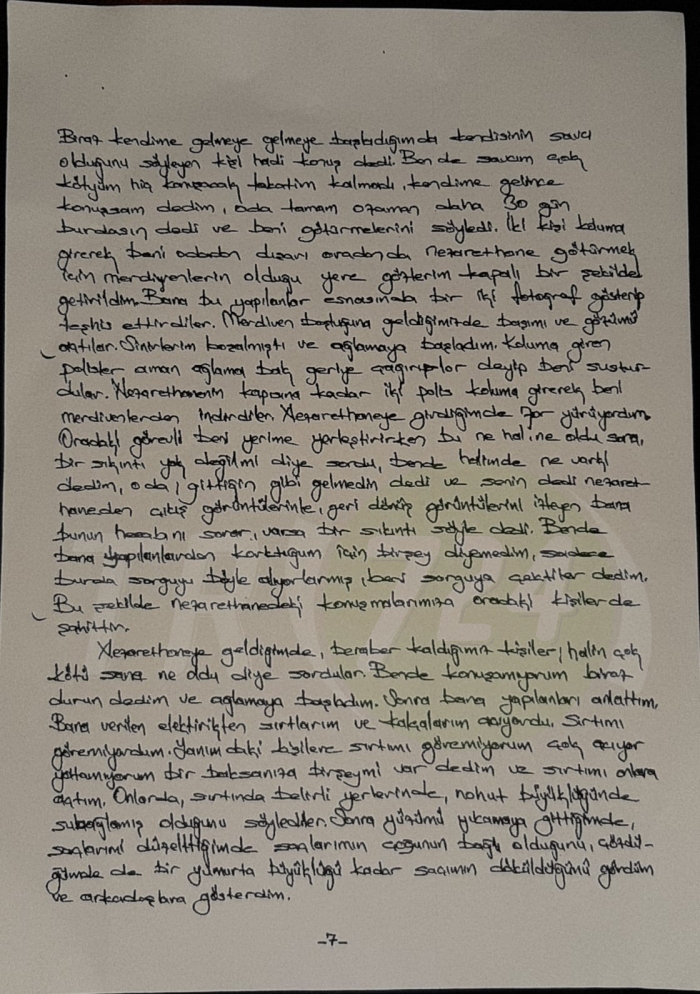 Biraz kendime gelmeye gelmeye başladığımda kendisinin savcı
olduğunu söyleyen kişi hadi konuş dedi. Ben de savcım çok
kötüyüm hiç konuşacak takatim kalmadı, kendime gelince
konuşsam dedim, oda tamam ozaman daha 30 gün
burdasın dedi ve beni götürmelerini söyledi. İki kişi koluma
girerek beni odadan dışarı oradanda nezarethane götürmek
için merdiyenlerin olduğu yere gözlerim kapalı bir şekilde
getirildim. Bana bu yapılanlar esnasında bir iki fotograf gösterip
teşhis ettirdiler. Merdiven boşluğuna geldiğimizde başımı ve gözümü
açtılar. Sinirlerim bozulmıştı ve ağlamaya başladım. Koluma giren
polisler aman ağlama bak geriye çağırırlar deyip beni sustur-
dular. Nezarethanenin kapısına kadar iki polis koluma girerek beni
merdivenlerden indirdiler. Nezarethaneye girdiğimde zor yürüyordum.
Oradaki görevli beni yerime yerleştirirken bu ne hal, ne oldu sana,
bir sıkıntı yok değilmi diye sordu, bende halimde ne varki
dedim, oda, gittiğin gibi gelmedin dedi ve senin dedi nezaret-
haneden çıkış görüntülerinle, geri dönüş görüntülerini izleyen bana
bunun hesabını sorar, varsa bir sıkıntı söyle dedi. Bende
bana yapılanlardan korktuğum için birşey diyemedim, sadece
burda sorguyu böyle alıyorlarmış, beni sorguya çektiler dedim.
Bu şekilde nezarethanedeki konuşmalarımıza oradaki kişilerde
şahittir.
Nezarethaneye geldiğimde, beraber kaldığımız kişiler, halin çok
kötü sana ne oldu diye sordular. Bende konuşamıyorum biraz
durun dedim ve ağlamaya başladım. Sonra bana yapılanları anlattım.
Bana verilen elektirikten sırtlarım ve kalçalarım acıyordu. Sırtımı
göremiyordum. Yanımdaki kişilere sırtımı göremiyorum çok acıyor
yatamıyorum bir baksanıza birşeymi var dedim ve sırtımı onlara
açtım. Onlarda, sırtında belirli yerlerinde, nohut büyüklüğünde
subağlamış olduğunu söylediler. Sonra yüzümü yıkamaya gittiğimde,
saçlarımı düzelttiğimde saçlarımın çoğunun bağlı olduğunu, çözdü-
ğümde de bir yumurta büyüklüğü kadar saçımın döküldüğünü gördüm
ve arkadaşlara gösterdim.
-7-